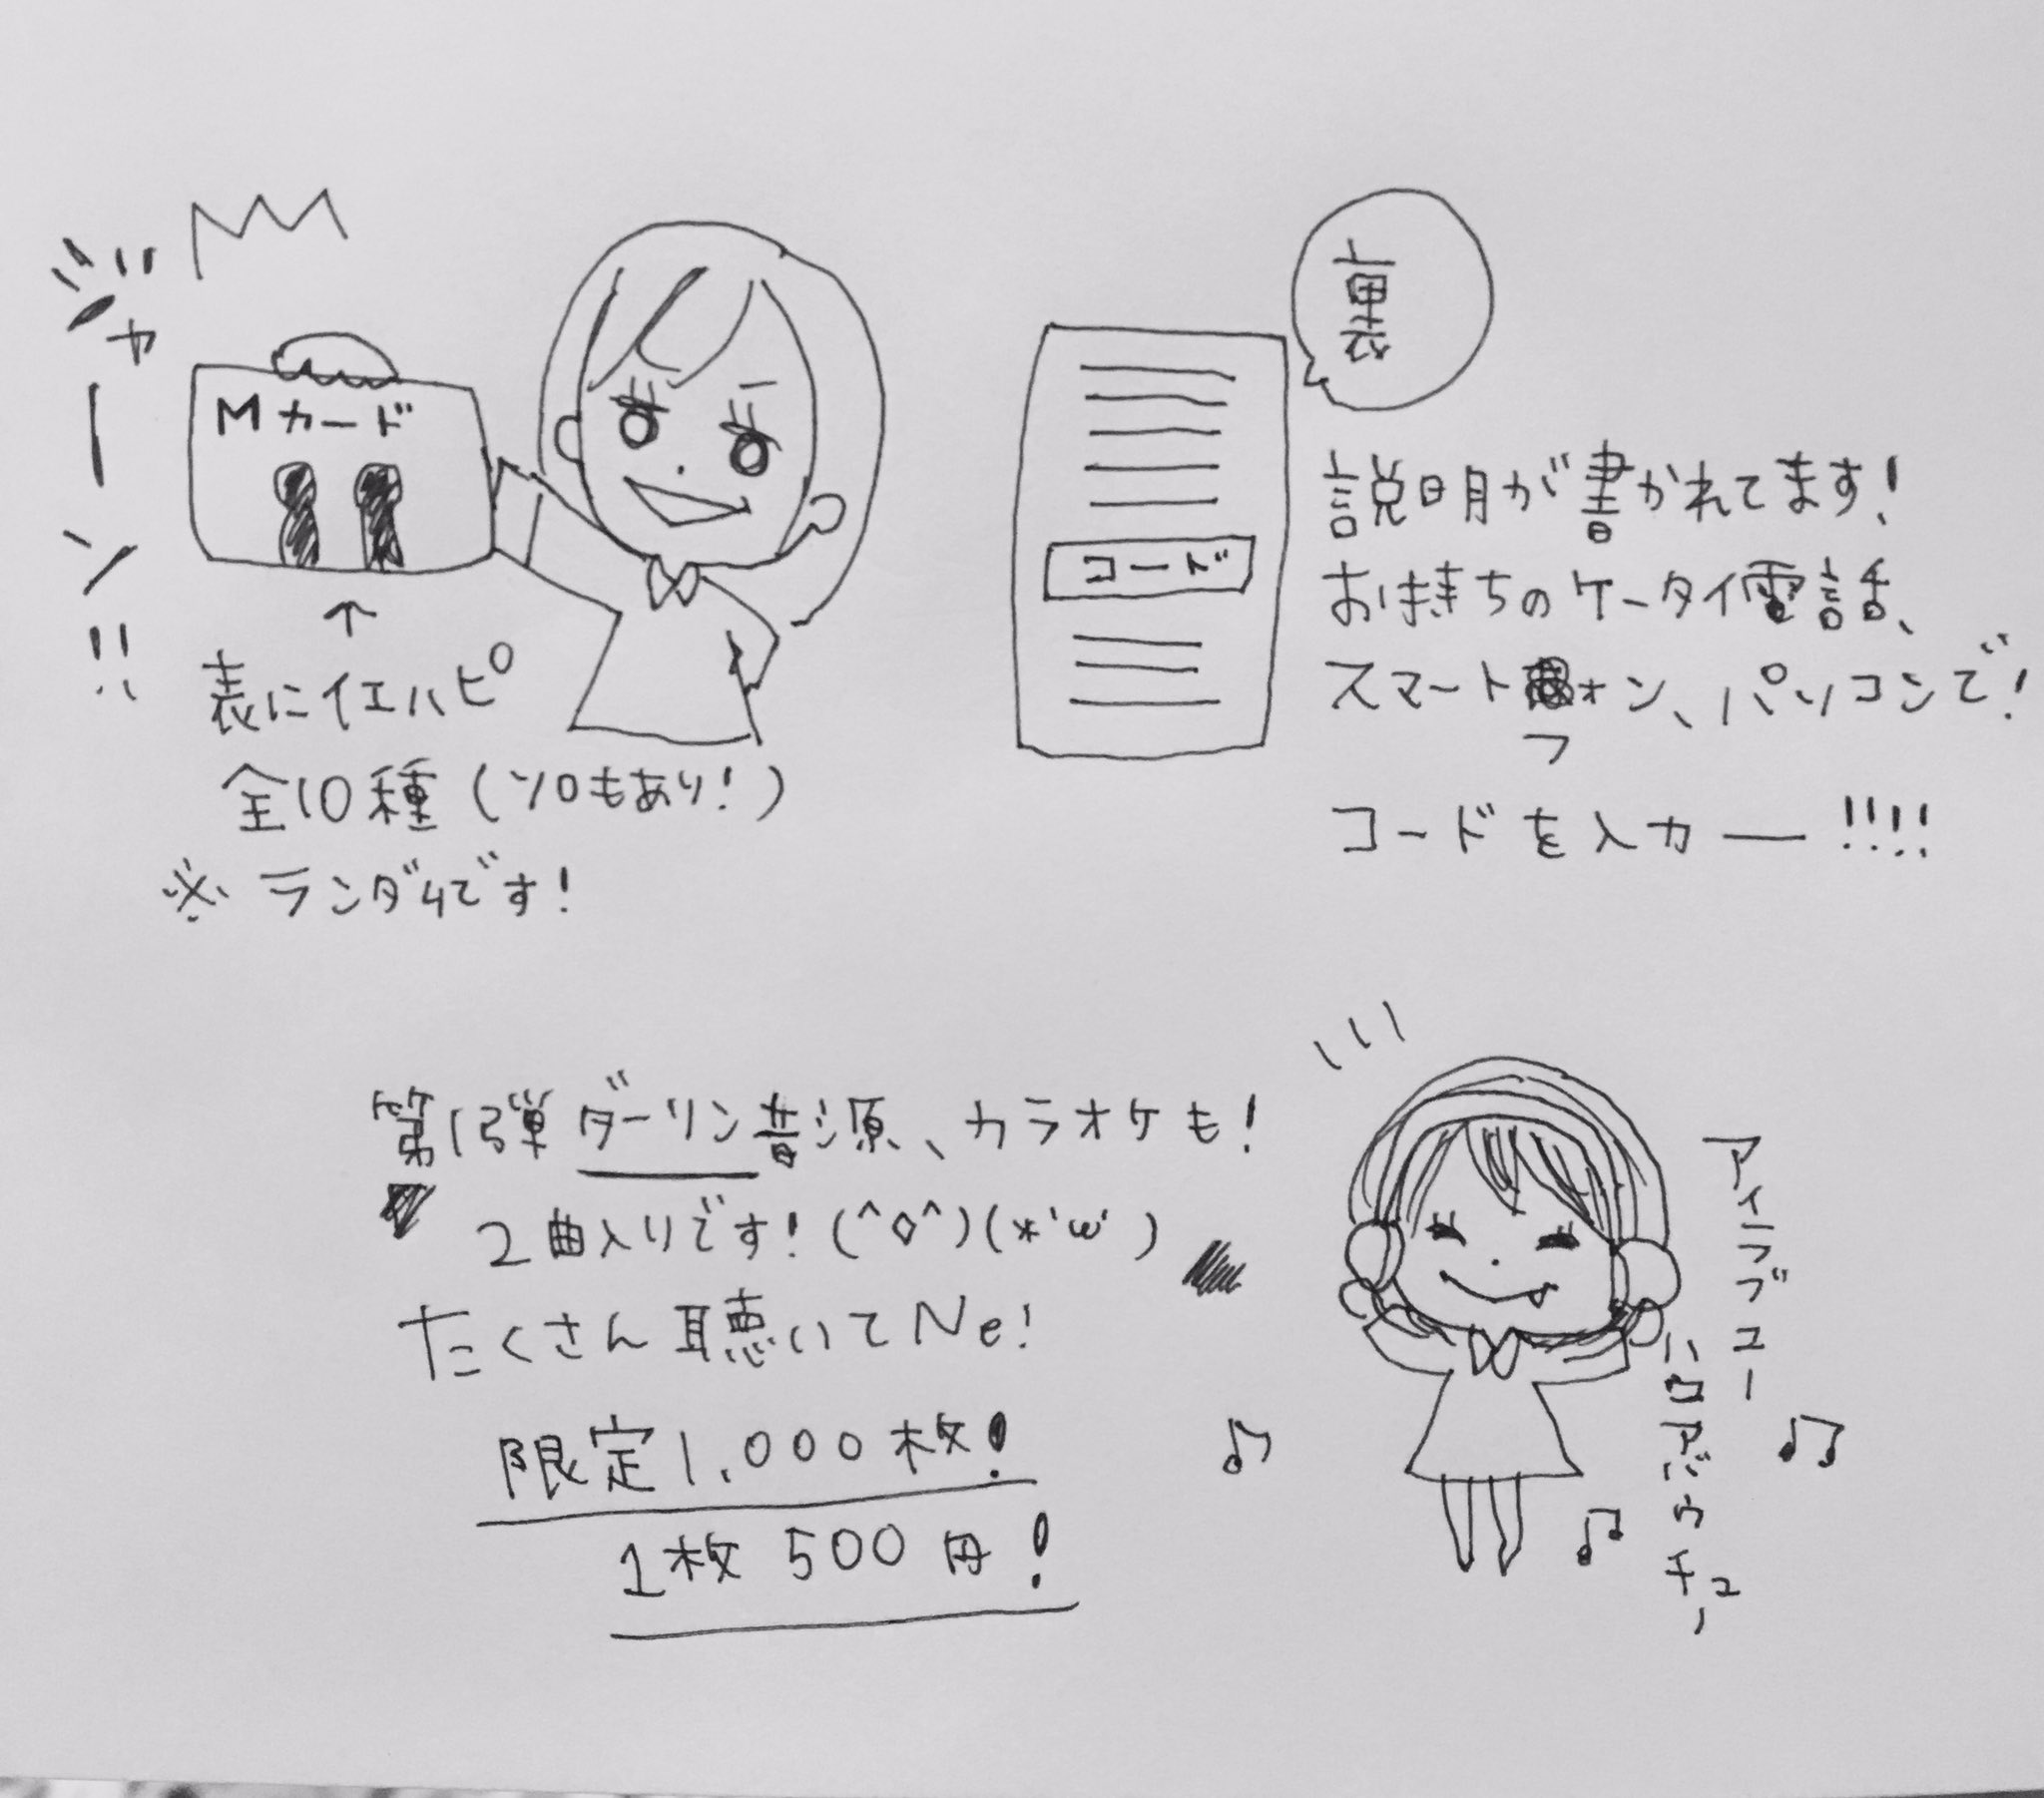 ジャーン!!
Mカード
↑
表にイエハピ
全10種(ソロもあり!)
※ランダムです!
裏
コード
説明が書かれてます!
お持ちのケータイ電話、
スマートフォン、パソコンで!
コードを入力ー!!!!
第1弾ダーリン音源、カラオケも!
2曲入りです!(^◇^)(*'ω')
たくさん聴いてNe!
限定1,000枚!
1枚500円!
アイラブユー
ハウアバウチュー